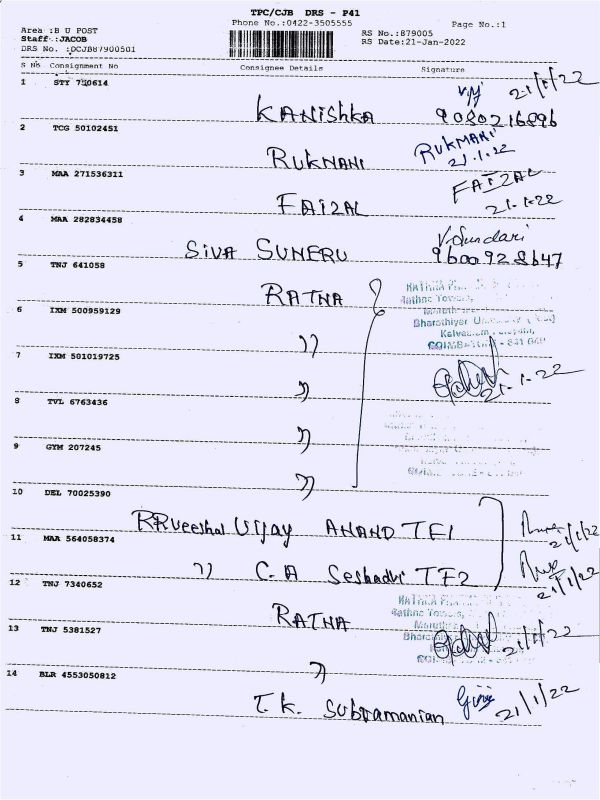 TPC/CJB DRS - P41
Phone No.:0422-3505555
Page No.:1
Area :B U POST
Staff.:JACOB
DRS No. :DCJB87900501
RS No.:879005
RS Date:21-Jan-2022
S No Consignment No Consignee Details Signature
1 STY 750614 21/1/22
KANISHKA 9080216896
2 TCG 50102451 RUKMANI
RUKMANI 21.1.22
3 MAA 271536311 FAIZAL
FAIZAL 21.1.22
4 MAA 282834458 V.Sundari
SIVA SUMERU 9600928647
5 TNJ 641058
RATNA
Rathna Towers,
Bharathiyar
COIMBATORE
6 IXM 500959129
"
7 IXM 501019725 21-1-22
"
8 TVL 6763436
"
9 GYM 207245
"
10 DEL 70025390
Vijay ANAND TF1 21/1/22
11 MAA 564058374
" C.A Seshadri TF2 21/1/22
12 TNJ 7340652
RATNA
Rathna Towers,
21/1/22
13 TNJ 5381527
"
14 BLR 4553050812
T.K. Subramanian 21/1/22